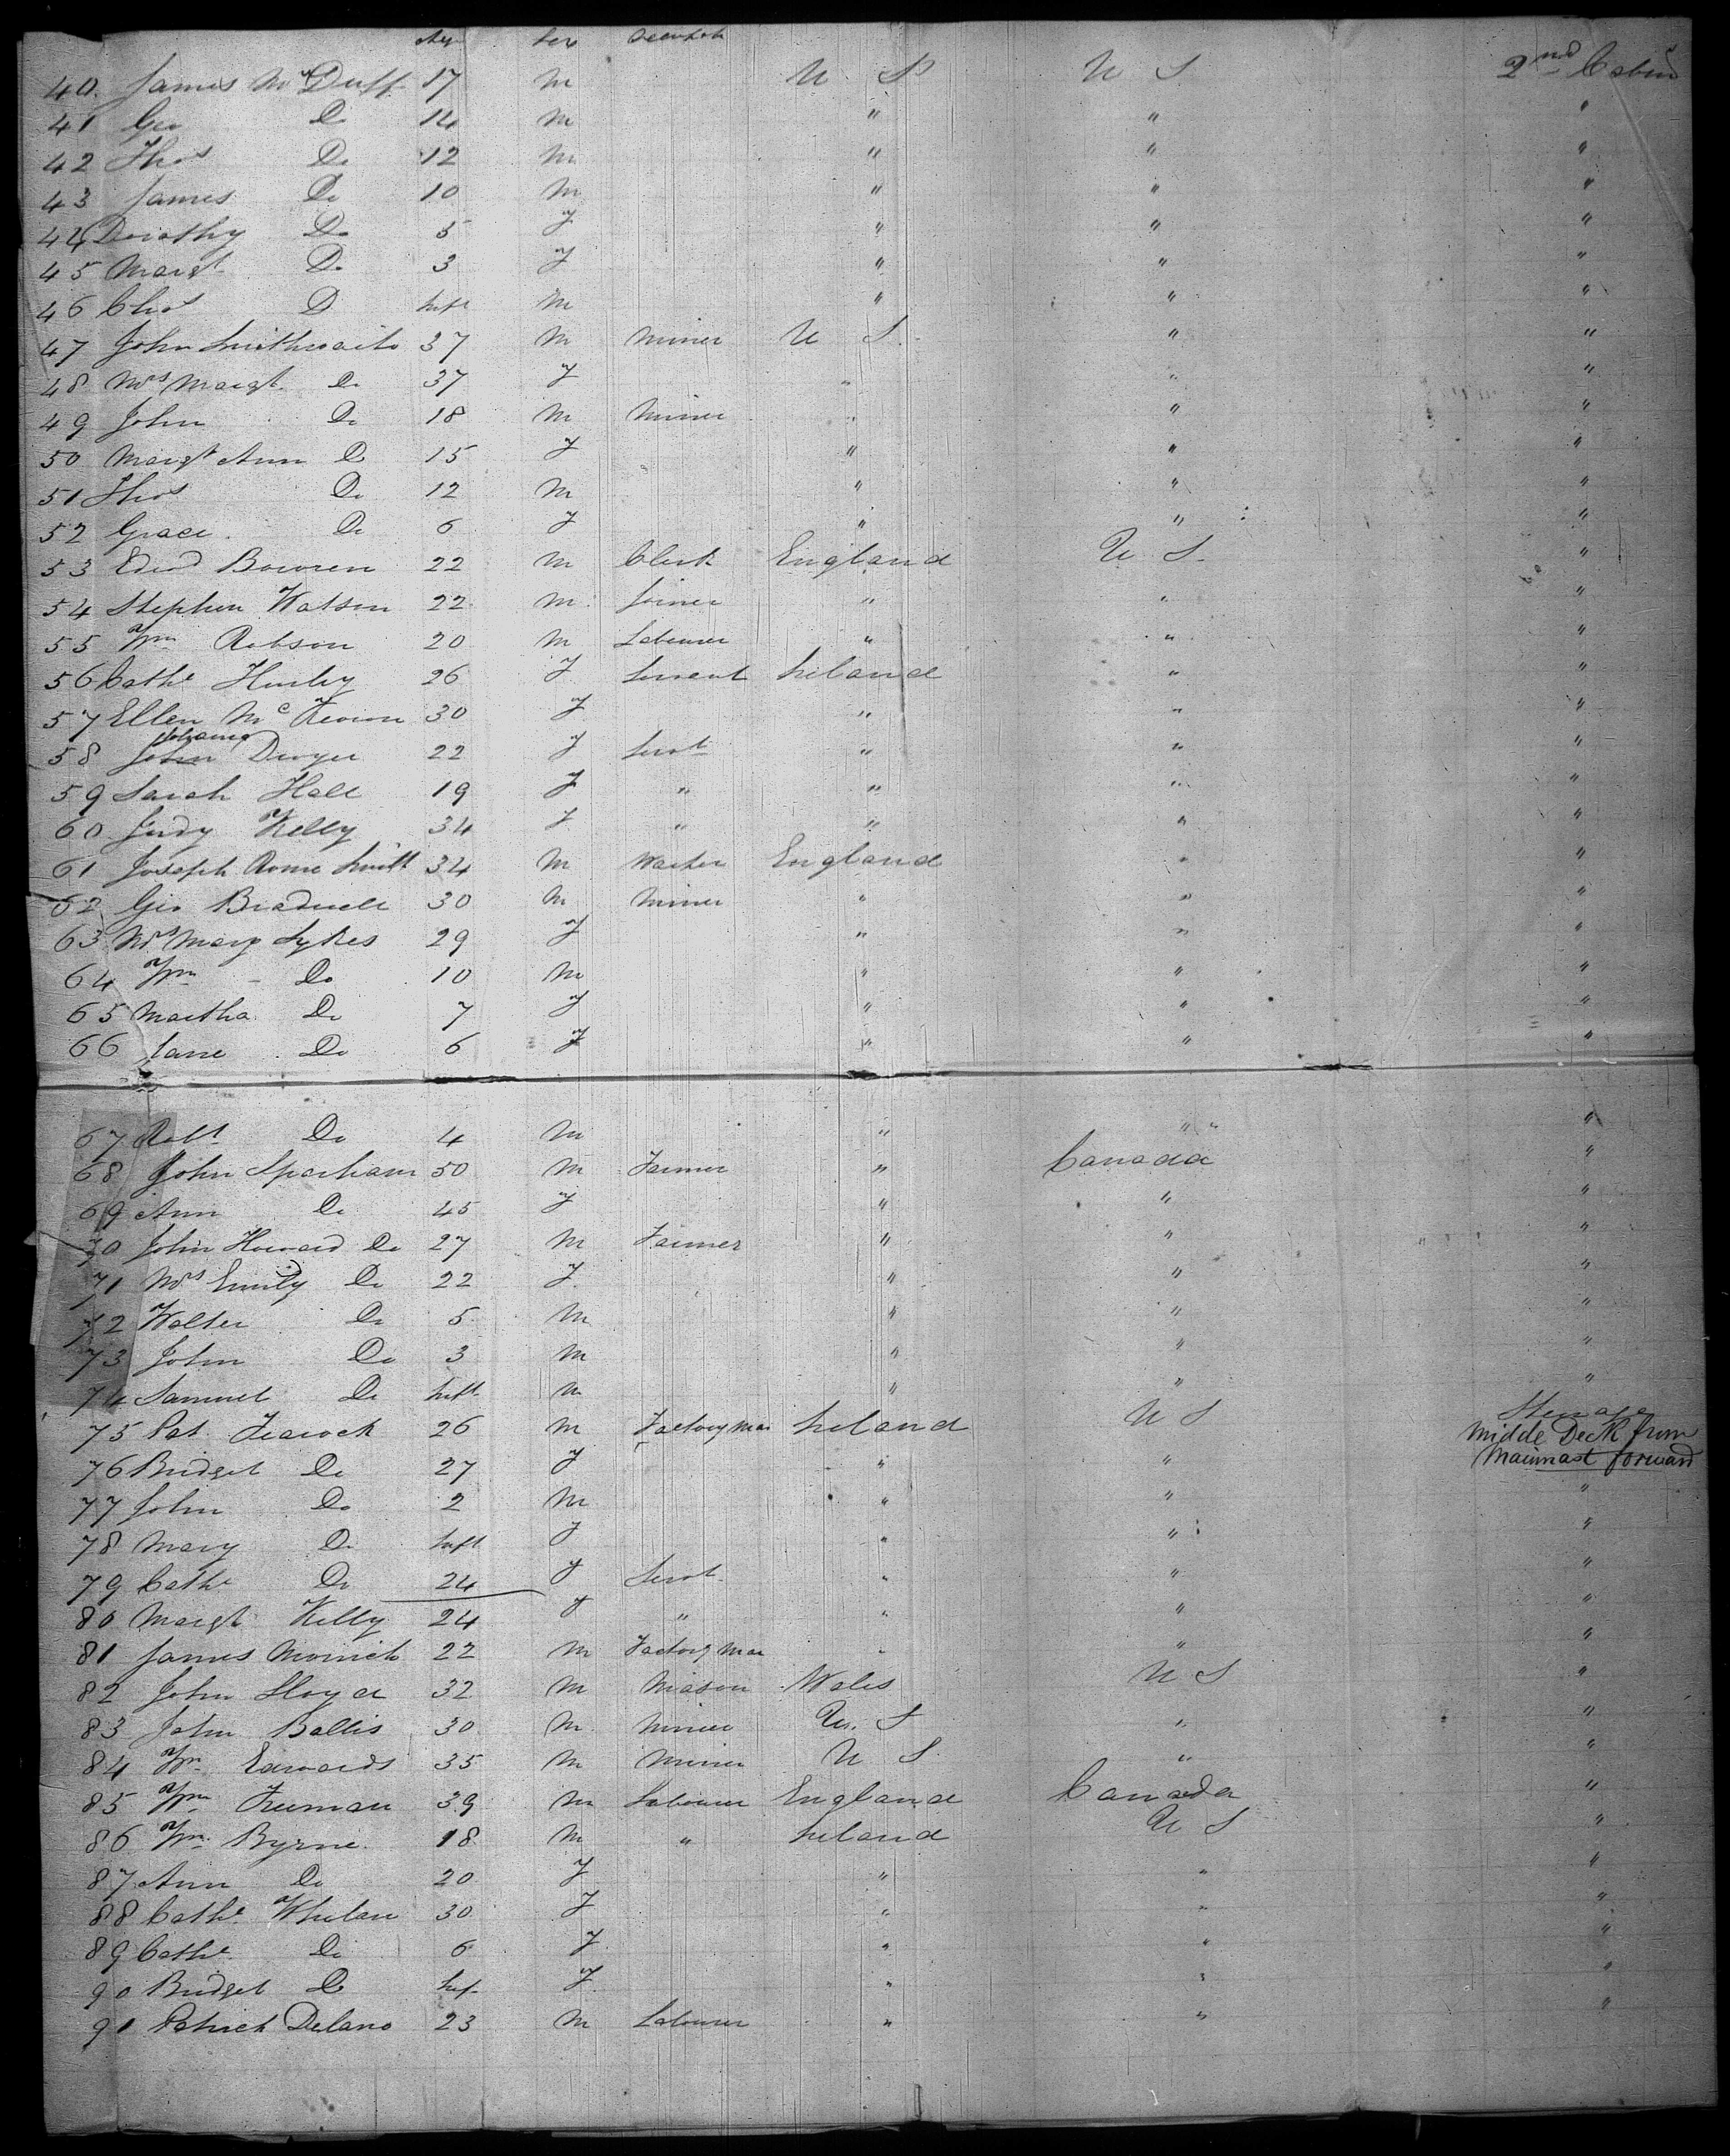 Age Sex Occupation
40. James McDuff 17 M U S U S 2nd Cabin
41 Geo Do 14 M " " "
42 Thos Do 12 M " " "
43 James Do 10 M " " "
44 Dorothy Do 5 F " " "
45 Margt Do 3 F " " "
46 Chas D Inft M " " "
47 John Smithwaite 37 M Miner U S. " "
48 Mrs Margt. Do 37 F " " "
49 John Do 18 M Miner " " "
50 Margt Ann D 15 F " " "
51 Thos Do 12 M " " "
52 Grace. Do 6 F " " "
53 Edwd Bowren 22 M Clerk England U S. "
54 Stephen Watson 22 M. Joiner " " "
55 Wm Robson 20 M Labourer " " "
56 Cathe Hurley 26 F Servant Ireland " "
57 Ellen Mc Keown 30 F " " "
58 Johanna Dwyer 22 F Servt " " "
59 Sarah Hall 19 F " " " "
60 Judy Kelly 34 F " " " "
61 Joseph Rome Smith 34 M England " "
62 Geo Bradwell 30 M Miner " " "
63 Mrs Mary Sykes 29 F " " "
64 Wm - Do 10 M " " "
65 Martha Do 7 F " " "
66 Jane Do 6 F " " "
67 Robt Do 4 M " " "
68 John Sparham 50 M Farmer " Canada "
69 Ann Do 45 F " " "
70 John Howard Do 27 M Farmer " " "
71 Mrs Emily Do 22 F " " "
72 Walter Do 5 M " " "
73 John Do 3 M " " "
74 Samuel Do Inft M " " "
75 Pat 26 M Factory Man Ireland U S Steerage
Midde Deck from
Mainmast forward
76 Bridget Do 27 F " "
77 John Do 2 M " " "
78 Mary D. Inft F " " "
79 Cathe Do 24 F Servt. " " "
80 Margt Kelly 24 F " " " "
81 James 22 M Factory Man " " "
82 John 32 M Mason Wales U S "
83 John Ballis 30 M. Miner U. S " "
84 Wm Edwards 35 M Miner U S. " "
85 Wm Freeman 39 M Labourer England Canada "
86 Wm. Byrne 18 M " Ireland U S "
87 Ann Do 20 F " " "
88 Cathe Whelan 30 F " " "
89 Cathe Do 6 F " " "
90 Bridget Do Inf. F " " "
91 Patrick Delano 23 M Labourer " " "